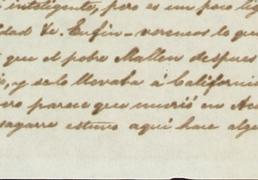 inteligente, pero es un poco lig
dad &c. Enfin - veremos lo que
que el pobre Mallen despues
, y se lo llevaba á Californi
ro parece que murió en
sagarre estuvo aqui hace alg